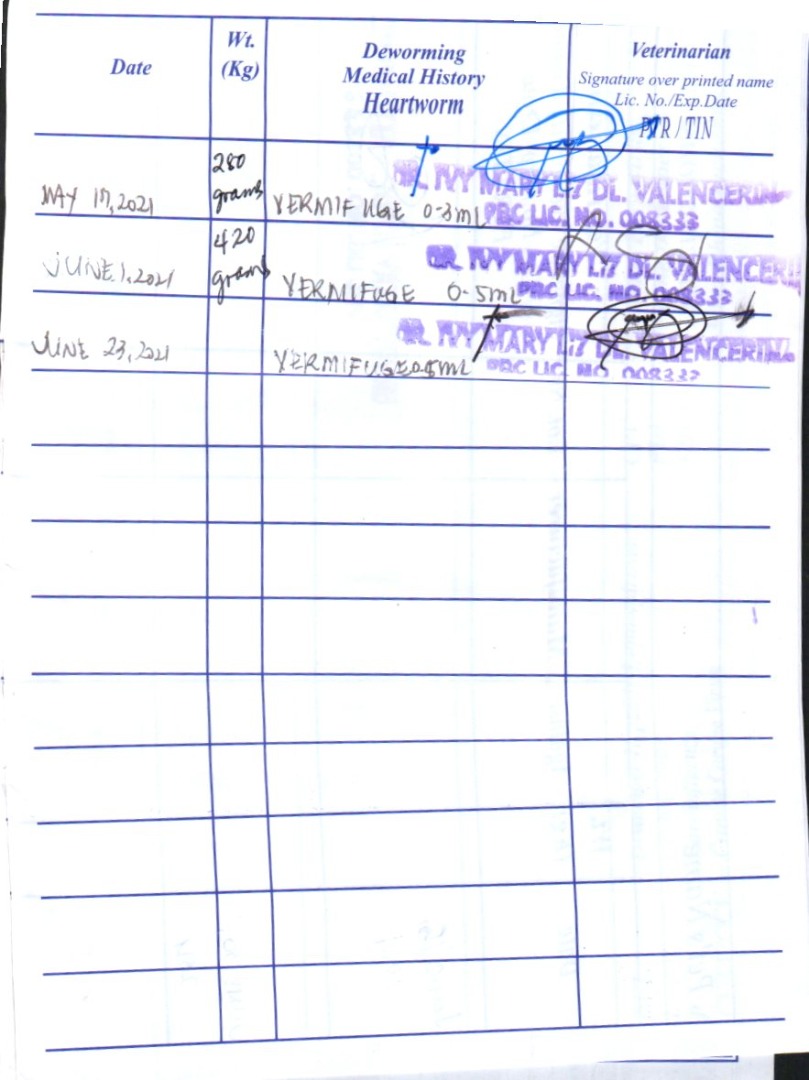 Date
Wt.
(Kg)
Deworming
Medical History
Heartworm
Veterinarian
Signature over printed name
Lic. No./Exp.Date
PTR / TIN
MAY 17, 2021
280
grams
VERMIFUGE 0.3mL
DR. IVY MARY LIZ DL. VALENCERINA
PRC LIC. NO. 008333
JUNE 1, 2021
420
grams
VERMIFUGE 0.5mL
DR. IVY MARY LIZ DL. VALENCERINA
PRC LIC. NO. 008333
JUNE 23, 2021
VERMIFUGE 0.5mL
DR. IVY MARY LIZ DL. VALENCERINA
PRC LIC. NO. 008333